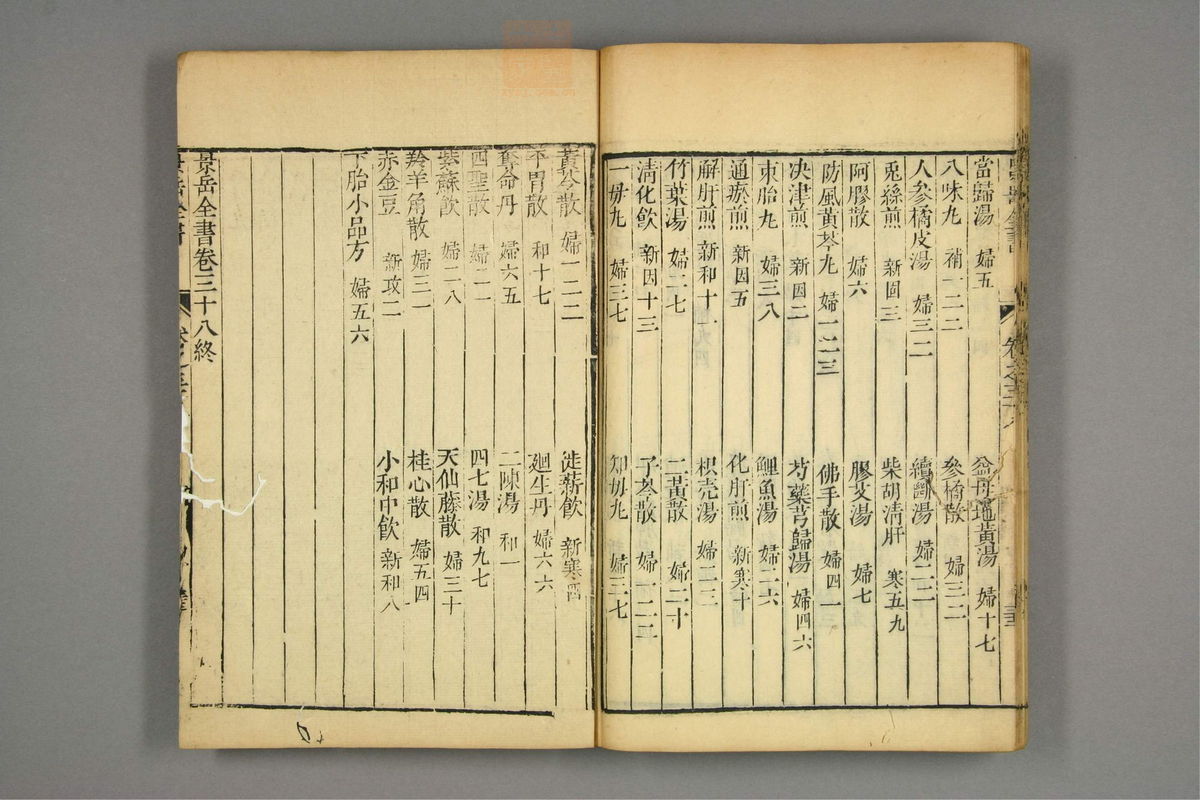 當歸湯 婦五 益母地黃湯 婦十七
八味丸 補一二二 參橘散 婦三二
人參橘皮湯 婦三二 續斷湯 婦二二
兎絲煎 新固三 柴胡清肝 寒五九
阿膠散 婦六 膠艾湯 婦七
防風黃芩丸 婦一二三 佛手散 婦四一
决津煎 新因二 芎藥芎歸湯 婦四六
束胎丸 婦三八 鯉魚湯 婦二六
通瘀煎 新因五 化肝煎 新寒十
解肝煎 新和十一 枳壳湯 婦二三
竹葉湯 婦二七 二黃散 婦二十
清化飲 新因十三 子芩散 婦一二二
一母丸 婦三七 知母丸 婦三七
黃芩散 婦一二二 徙薪飲 新寒
平胃散 和十七 廻生丹 婦六六
奪命丹 婦六五 二陳湯 和一
四聖散 婦二一 四七湯 和九七
紫蘇飲 婦二八 天仙藤散 婦三十
羚羊角散 婦三一 桂心散 婦五四
赤金豆 新攻二 小和中飲 新和八
下胎小品方 婦五六
景岳全書卷三十八終